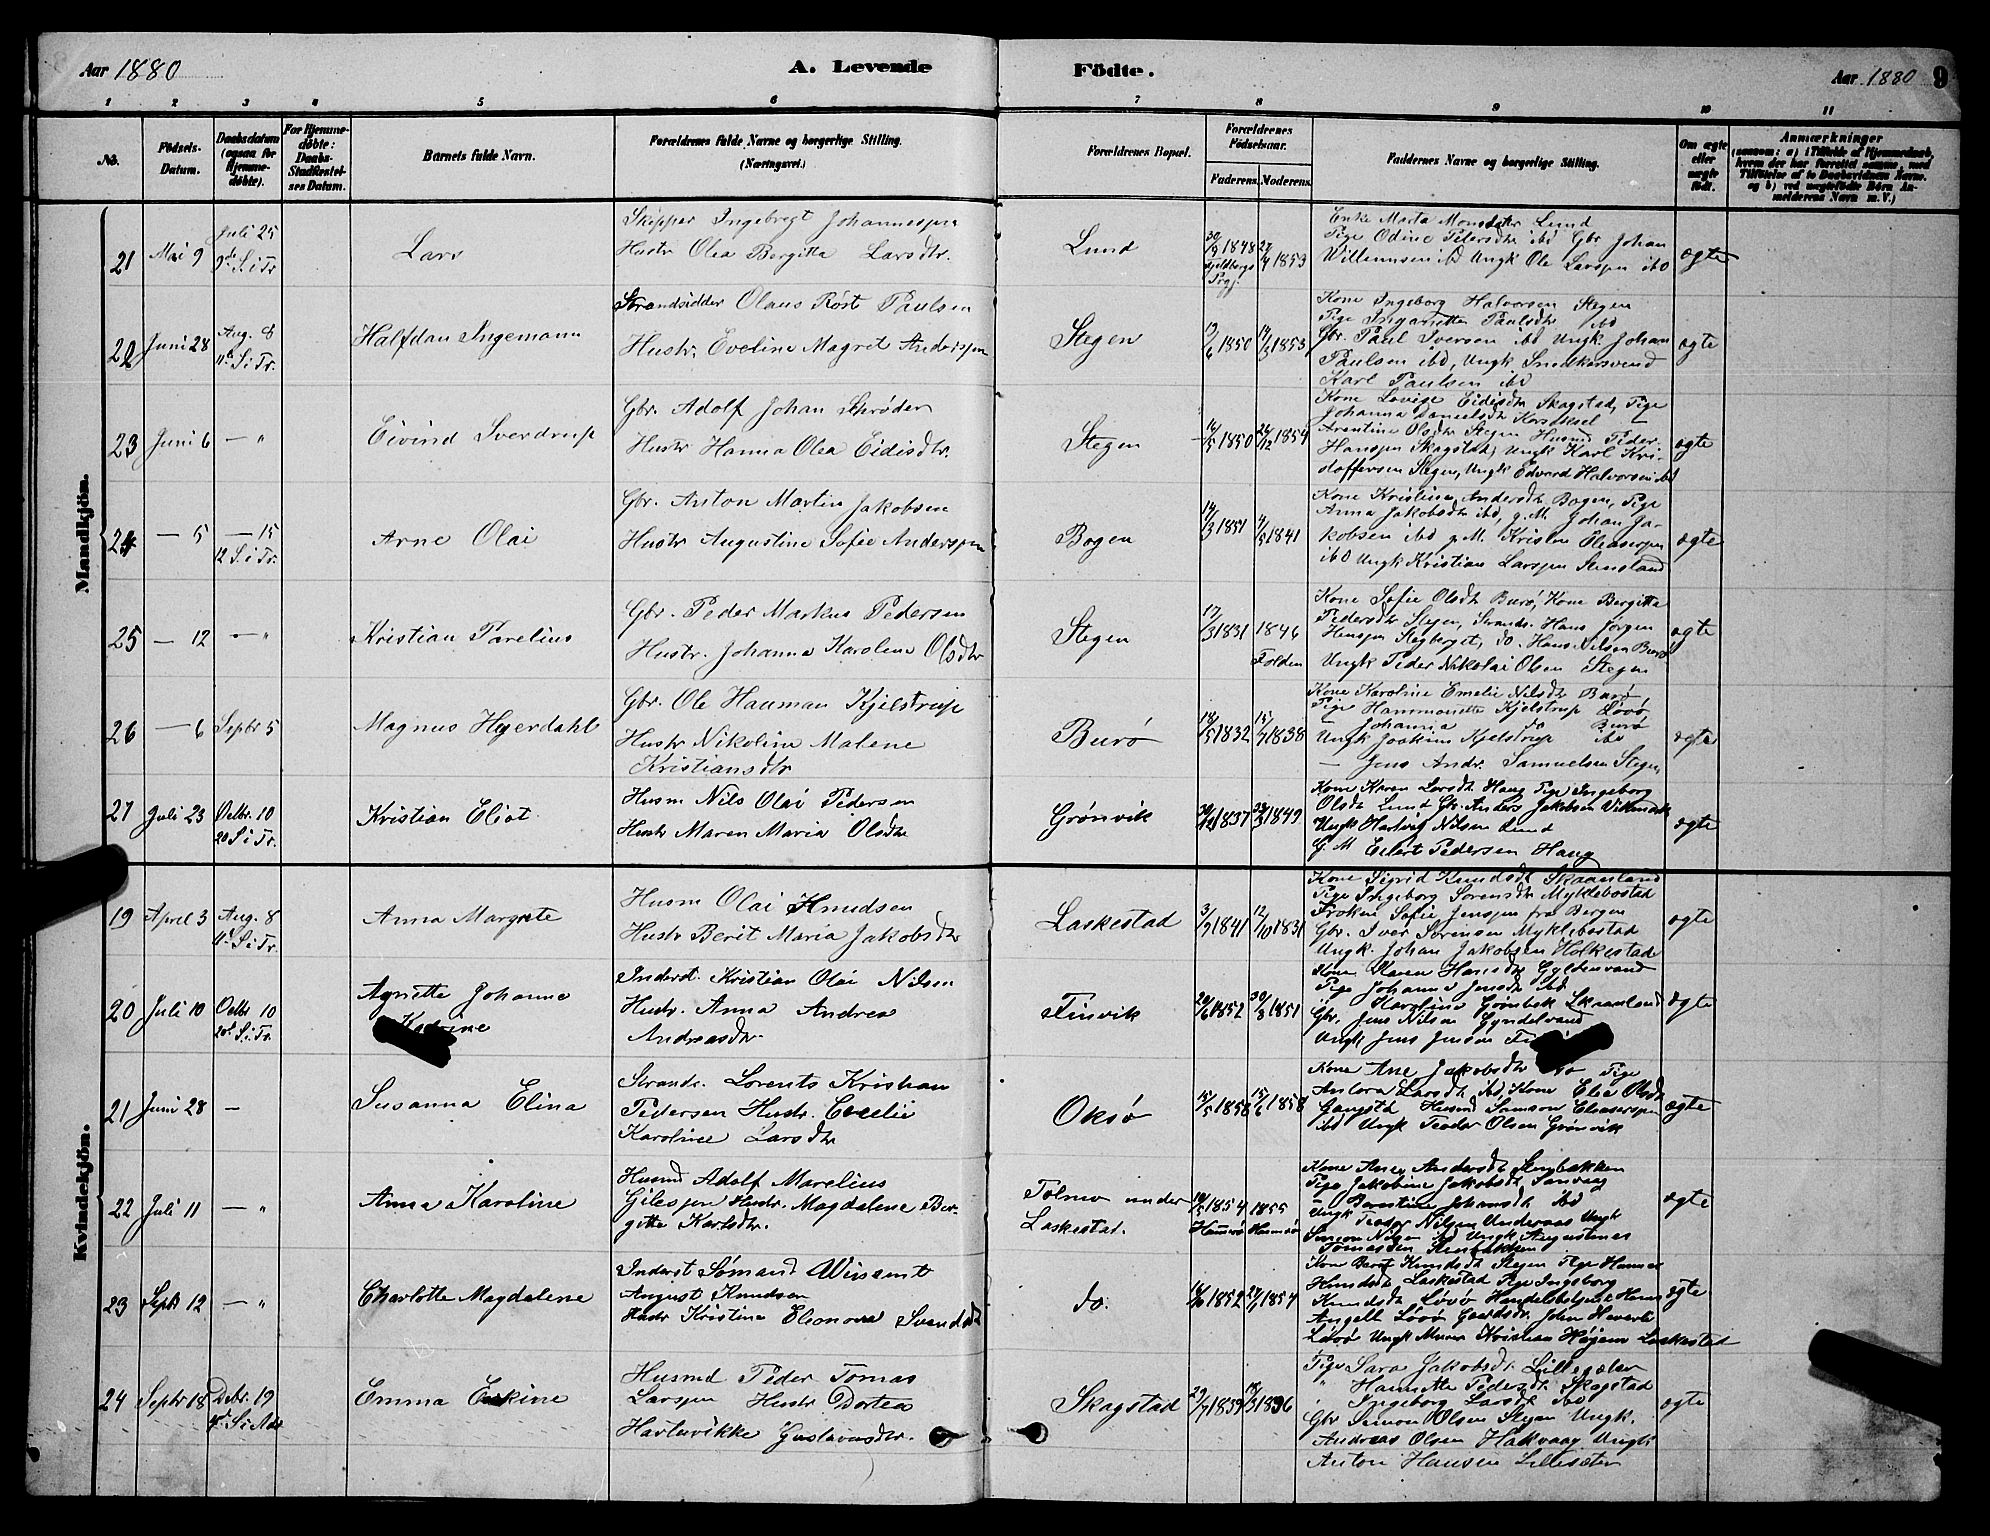 Aar 1880
A. Levende
Födte.
Aar 1880 9
1 2 3 4 5 6 7 8 9 10 11
No.
Födsels-Datum.
Daabsdatum (ogsaa for Hjemme-döbte).
For Hjemme-döbte: Daabs-Stadfæstel-ses Datum.
Barnets fulde Navn.
Forældrenes fulde Navne og borgerlige Stilling.
(Næringsvei.)
Forældrenes Bopæl.
Forældrenes Födselsaar.
Faderens. Moderens.
Faddernes Navne og borgerlige Stilling.
Om ægte eller uægte födt.
Anmærkninger
(saasom: a) i Tilfælde af Hjemmedaab,
hvem der har forrettet samme, med
Tilföielse af to Daabsvidners Navne,
og b) ved uægtefödte Börn An-
melderens Navn m. V.)
Mandkjön.
21 Mai 9 Juli 25 9de S. i Tr. Lars
Skipper Ingebrigt Johannesen
Hustr Olea Bergitta Larsdtr.
Lund 30/9 1848 27/4 1853
Enke Marta Monsdatter Lund
Pige Odine Pedersdtr ibd Gbr Johan
Willumsen ibd Ungk Ole Larssen ibd
ægte
22 Juni 28 Aug. 8 11te S. i Tr. Halfdan Ingemann
Strandsidder Olaus Röst Paulsen
Hustr. Eveline Magret Anderssen
Stegen 12/6 1850 14/3 1853
Kone Ingeborg Halvorsen Stegen
Pige Inganetta Paulsdtr ibd
Gbr. Paul Iversen ibd Ungk. Johan
Paulsen ibd, Ungk. Snedkersvend
Karl Paulsen ibd
ægte
23 Juni 6 — " Eivind Sverdrup
Gbr. Adolf Johan Schrøder
Hustr Hanna Olea Eidisdtr.
Stegen 14/5 1850 24/12 1854
Kone Lovise Eidisdtr Skagstad, Pige
Johanna Danielsdtr
Arentine Olsdtr Stegen Husmd Peder
Hanssen Skagstad, Ungk Karl Kri-
stoffersen Stegen, Ungk Edvard Halvorsen ibd
ægte
24 — 5 — 15 12 S. i Tr. Arne Olai
Gbr. Anton Martin Jakobsen
Hustr Augustine Sofie Anderssen
Bogen 14/3 1851 4/5 1841
Kone Kristine Andersdtr Bogen, Pige
Anna Jakobsdtr ibd, g. M. Johan Ja-
kobsen ibd g. M. Kristen Eleasersen
ibd Ungk Kristian Larssen
ægte
25 — 12 — " Kristian Parelius
Gbr. Peder Markus Pedersen
Hustr. Johanna Karoline Olsdtr
Stegen 17/3 1831 1846 Folden
Kone Sofie Olsdtr Burö, Kone Bergitta
Pedersdtr Stegen, Strands. Hans Jörgen
Hanssen Stegberget, do. Hans Nilsen Burö
Ungk Peder Nikolai Olsen Stegen
ægte
26 — 6 Septbr 5 Magnus Heyerdahl
Gbr. Ole Hauman Kjelstrup
Hustr Nikolina Malene
Kristiansdtr
Burø 18/5 1832 15/7 1838
Kone Karoline Emelie Nilsdtr Burö
Pige Hammonette Kjelstrup Lövö
— Johanna do Burö
Ungk Joakim Kjelstrup ibd
— Jens Andr. Samuelsen Stegen
ægte
27 Juli 23 Octbr. 10 20 S. i Tr. Kristian Eliot
Husm Nils Olai Pedersen
Hustr Maren Maria Olsdtr
Grønvik 1837 1849
Kone Karen Larsdtr Haug Pige Ingeborg
Olsdtr Lund Gbr. Anders Jakobsen Vikmark
Ungk Hartvig Nilsen Lund
G. M Eilert Pedersen Haug
ægte
Kvindekjön.
19 April 3 Aug. 8 11te S. i Tr. Anna Margrete
Husm Olai Knudsen
Hustr Berit Maria Jakobsdtr
Laskestad 3/9 1841 12/10 1831
Kone Sigrid Knudsdtr Skaanland
Pige Ingeborg Sorensdtr Myklebostad
Frøken Sofie Jenssen fra Bergen
Gbr. Iver Sörensen Myklebostad
Ungk. Johan Jakobsen Holkestad
ægte
20 Juli 10 Octbr. 10 20de S. i Tr. Agnette Johanne
Katrine
Inderst. Kristian Olai Nilsen
Hustr. Anna Andrea
Andreasdtr.
Finvik 1852 30/8 1851
Kone Maren Hansdtr
Pige Johanna Jensdtr ibd
Karoline Grönbek Skaanland
Gbr. Jens Nilsen
Ungk Jens Jensen
ægte
21 Juni 28 — Susanna Elina
Strands. Lorents Kristian
Pedersen Hustr. Cecelie
Karoline Larsdtr
Oksø 1858 15/6 1858
Kone Ane Jakobsdtr Pige
Larsdtr ibd Kone Elea Olsdtr
Husmd Samson Eleasersen
ibd Ungk Teodor Olsen Grønvik
ægte
22 Juli 11 — " Anna Karoline
Husmd Adolf Marelius
Hustr. Magdalene Ber-
gitte Karlsdtr.
Tolmo under
Laskestad.
1854 1855 Hammerö
Kone Ane Andersdtr
Pige Jakobine Jakobsdtr
" Berntine Johansdtr ibd
Ungk Teodor Nilsen Ungk
Simeon Nilsen ibd Ungk Augustines
Tomassen
ægte
23 Septb 12 — " Charlotte Magdalena
Inderst Sömand
August Knudsen
Hustr Kristine Eleonora
do. 1852 1857
Kone Berit Knudsdtr Stegen Pige Hanna
Knudsdtr Laskestad Pige Ingeborg
Knudsdtr Lövö Handelsbetjent Hans
Angell Lövö Gaardsdr. John
Lövö Ungk Kristian Laskestad
ægte
24 Septbr 18 Debr. 19 4de S. i Adv. Emma
Husmd Peder Tomas
Larssen Hustr Dortea
Gustavasdtr.
Skagstad 29/7 1839 1836
Pige Sara Jakobsdtr Lillegælen
" Hannette Pedersdtr Skagstad
" Ingeborg Larsdtr ibd
Gbr Simon Olsen Stegen Ungk.
Andreas Olsen Hakvaag Ungk
Anton Hansen
ægte